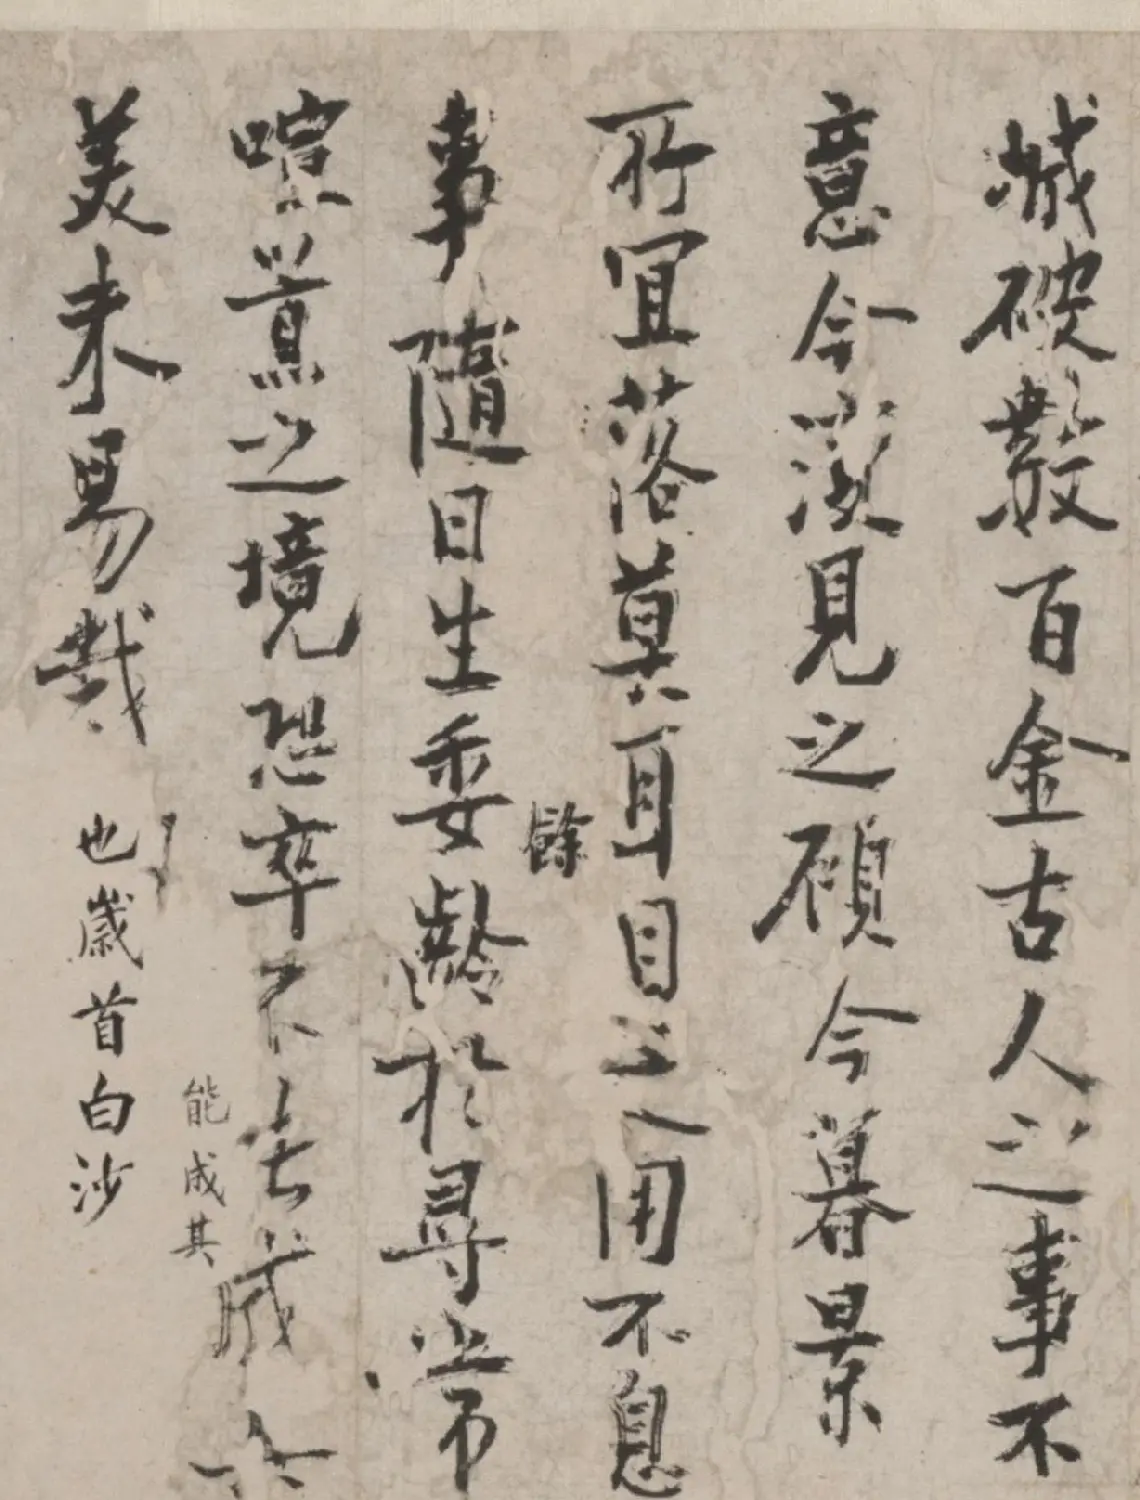 破數百金古人之事不
意今見之顧今暮景
所宜落莫耳目之用不息
餘
事隨日生委齡於尋常
喧薰之境恐卒不能成其
能成其
美未易哉
也歲首白沙